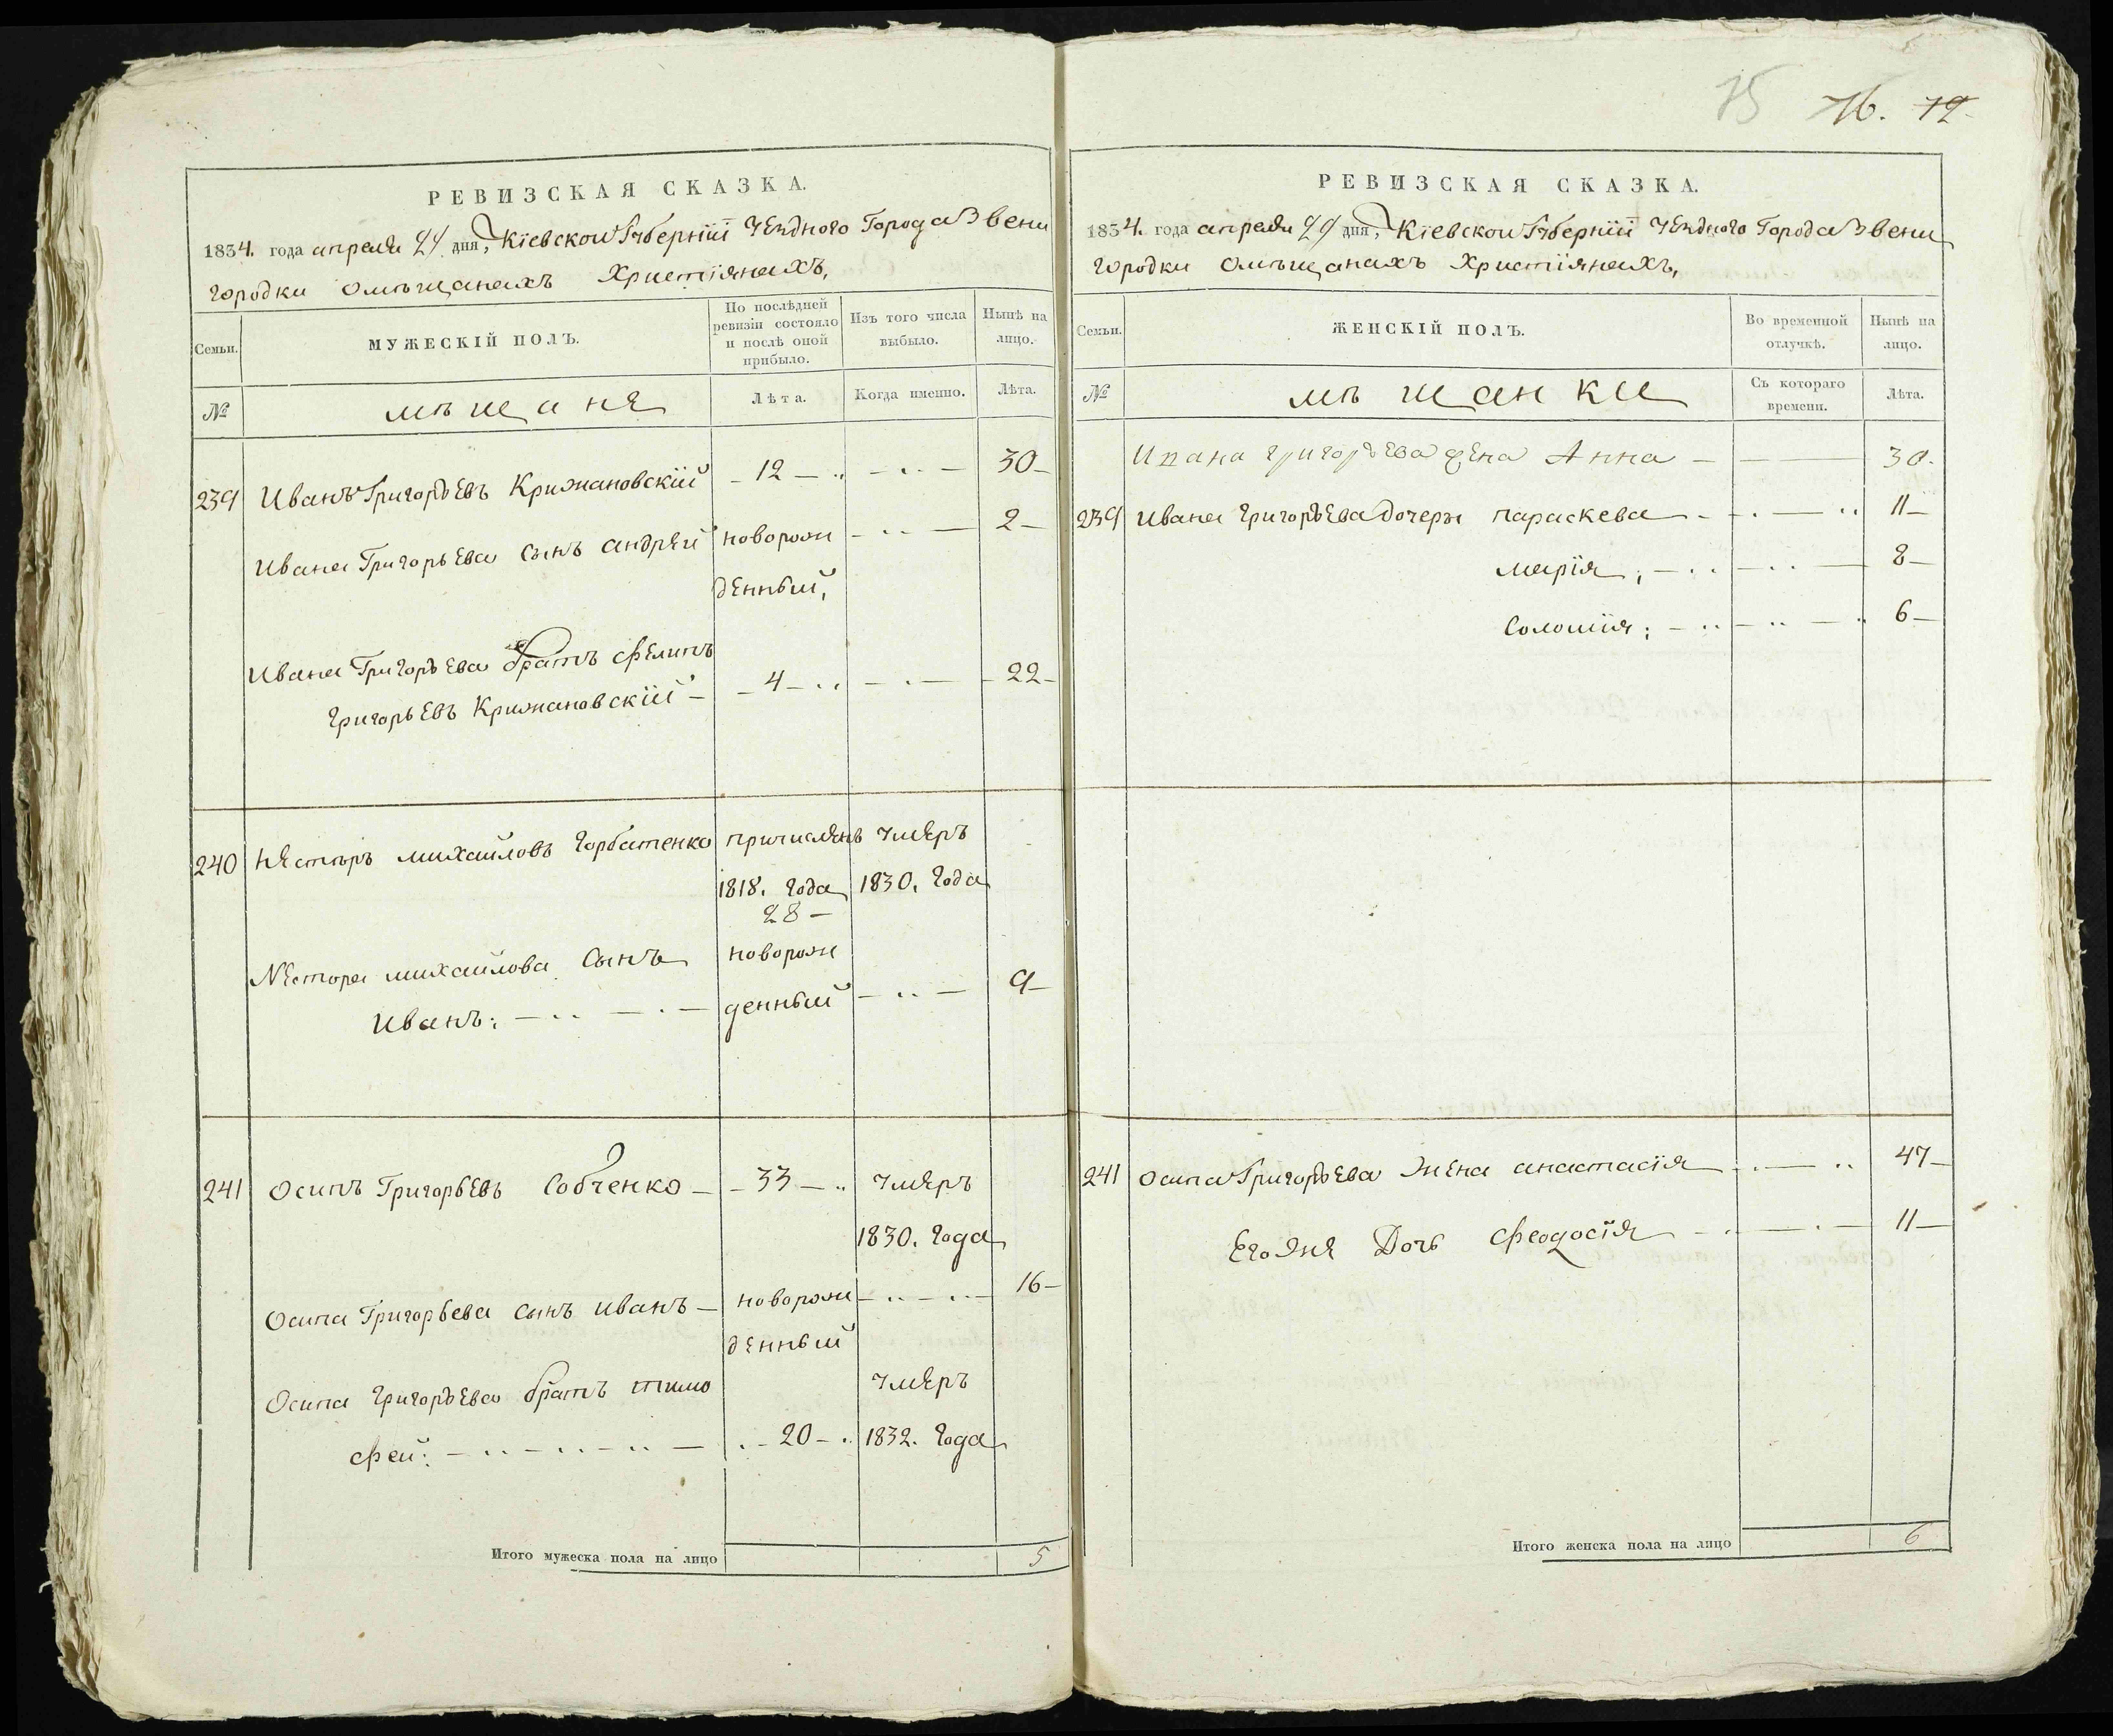 РЕВИЗСКАЯ СКАЗКА.
1834. года апреля 29 дня, Кіевской Губерніи Уезднаго Города Звени
городки о мѣщанахъ Христіянахъ,
Семьи.
МУЖЕСКІЙ ПОЛЪ.
По послѣдней
ревизіи состояло
и послѣ оной
прибыло.
Изъ того числа
выбыло.
Нынѣ на
лицо.
№
мѣщане
Лѣта.
Когда именно.
Лѣта.
239 Иванъ Григорьевъ Крижановскій 12 30
Ивана Григорьева Сынъ андрей новорож 2
денный,
Ивана Григорьева братъ Филипъ
Григорьевъ Крижановскій 4 22
240 Несторъ михайловъ Горбатенко причисленъ умеръ
1818. года 1830. года
28
Нестора михайлова Сынъ новорож
Иванъ: денный 9
241 Осипъ Григорьевъ Собченко 33 умеръ
1830. года
Осипа Григорьева Сынъ Иванъ новорож 16
денный
Осипа Григорьева братъ тимо умеръ
фей: 20 1832. года
Итого мужеска пола на лицо 5
75 76. 79
РЕВИЗСКАЯ СКАЗКА.
1834. года апреля 29 дня, Кіевской Губерніи Уезднаго Города Звени
городки о мѣщанахъ Христіянахъ,
Семьи.
ЖЕНСКІЙ ПОЛЪ.
Во временной
отлучкѣ.
Нынѣ на
лицо.
№
мѣщанки
Съ котораго
времени.
Лѣта.
Ивана Григорьева жена Анна 30.
239 Ивана Григорьева дочери параскева 11
марія; 8
Соломія; 6
241 Осипа Григорьева Жена анастасія 47
Его Же Дочь Феодосія 11
Итого женска пола на лицо 6